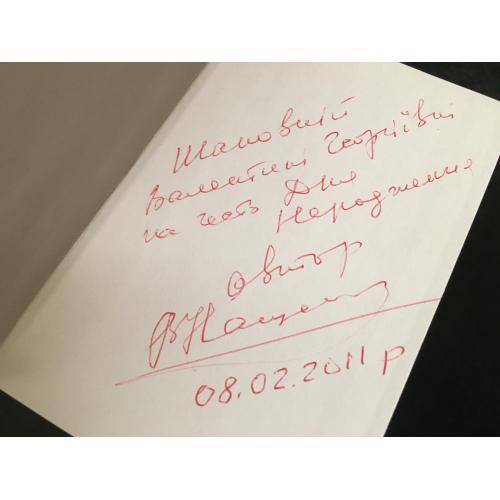 Шановній
Валентині Георгіївні
на честь Дня
Народження
Автор
08.02.2011 р